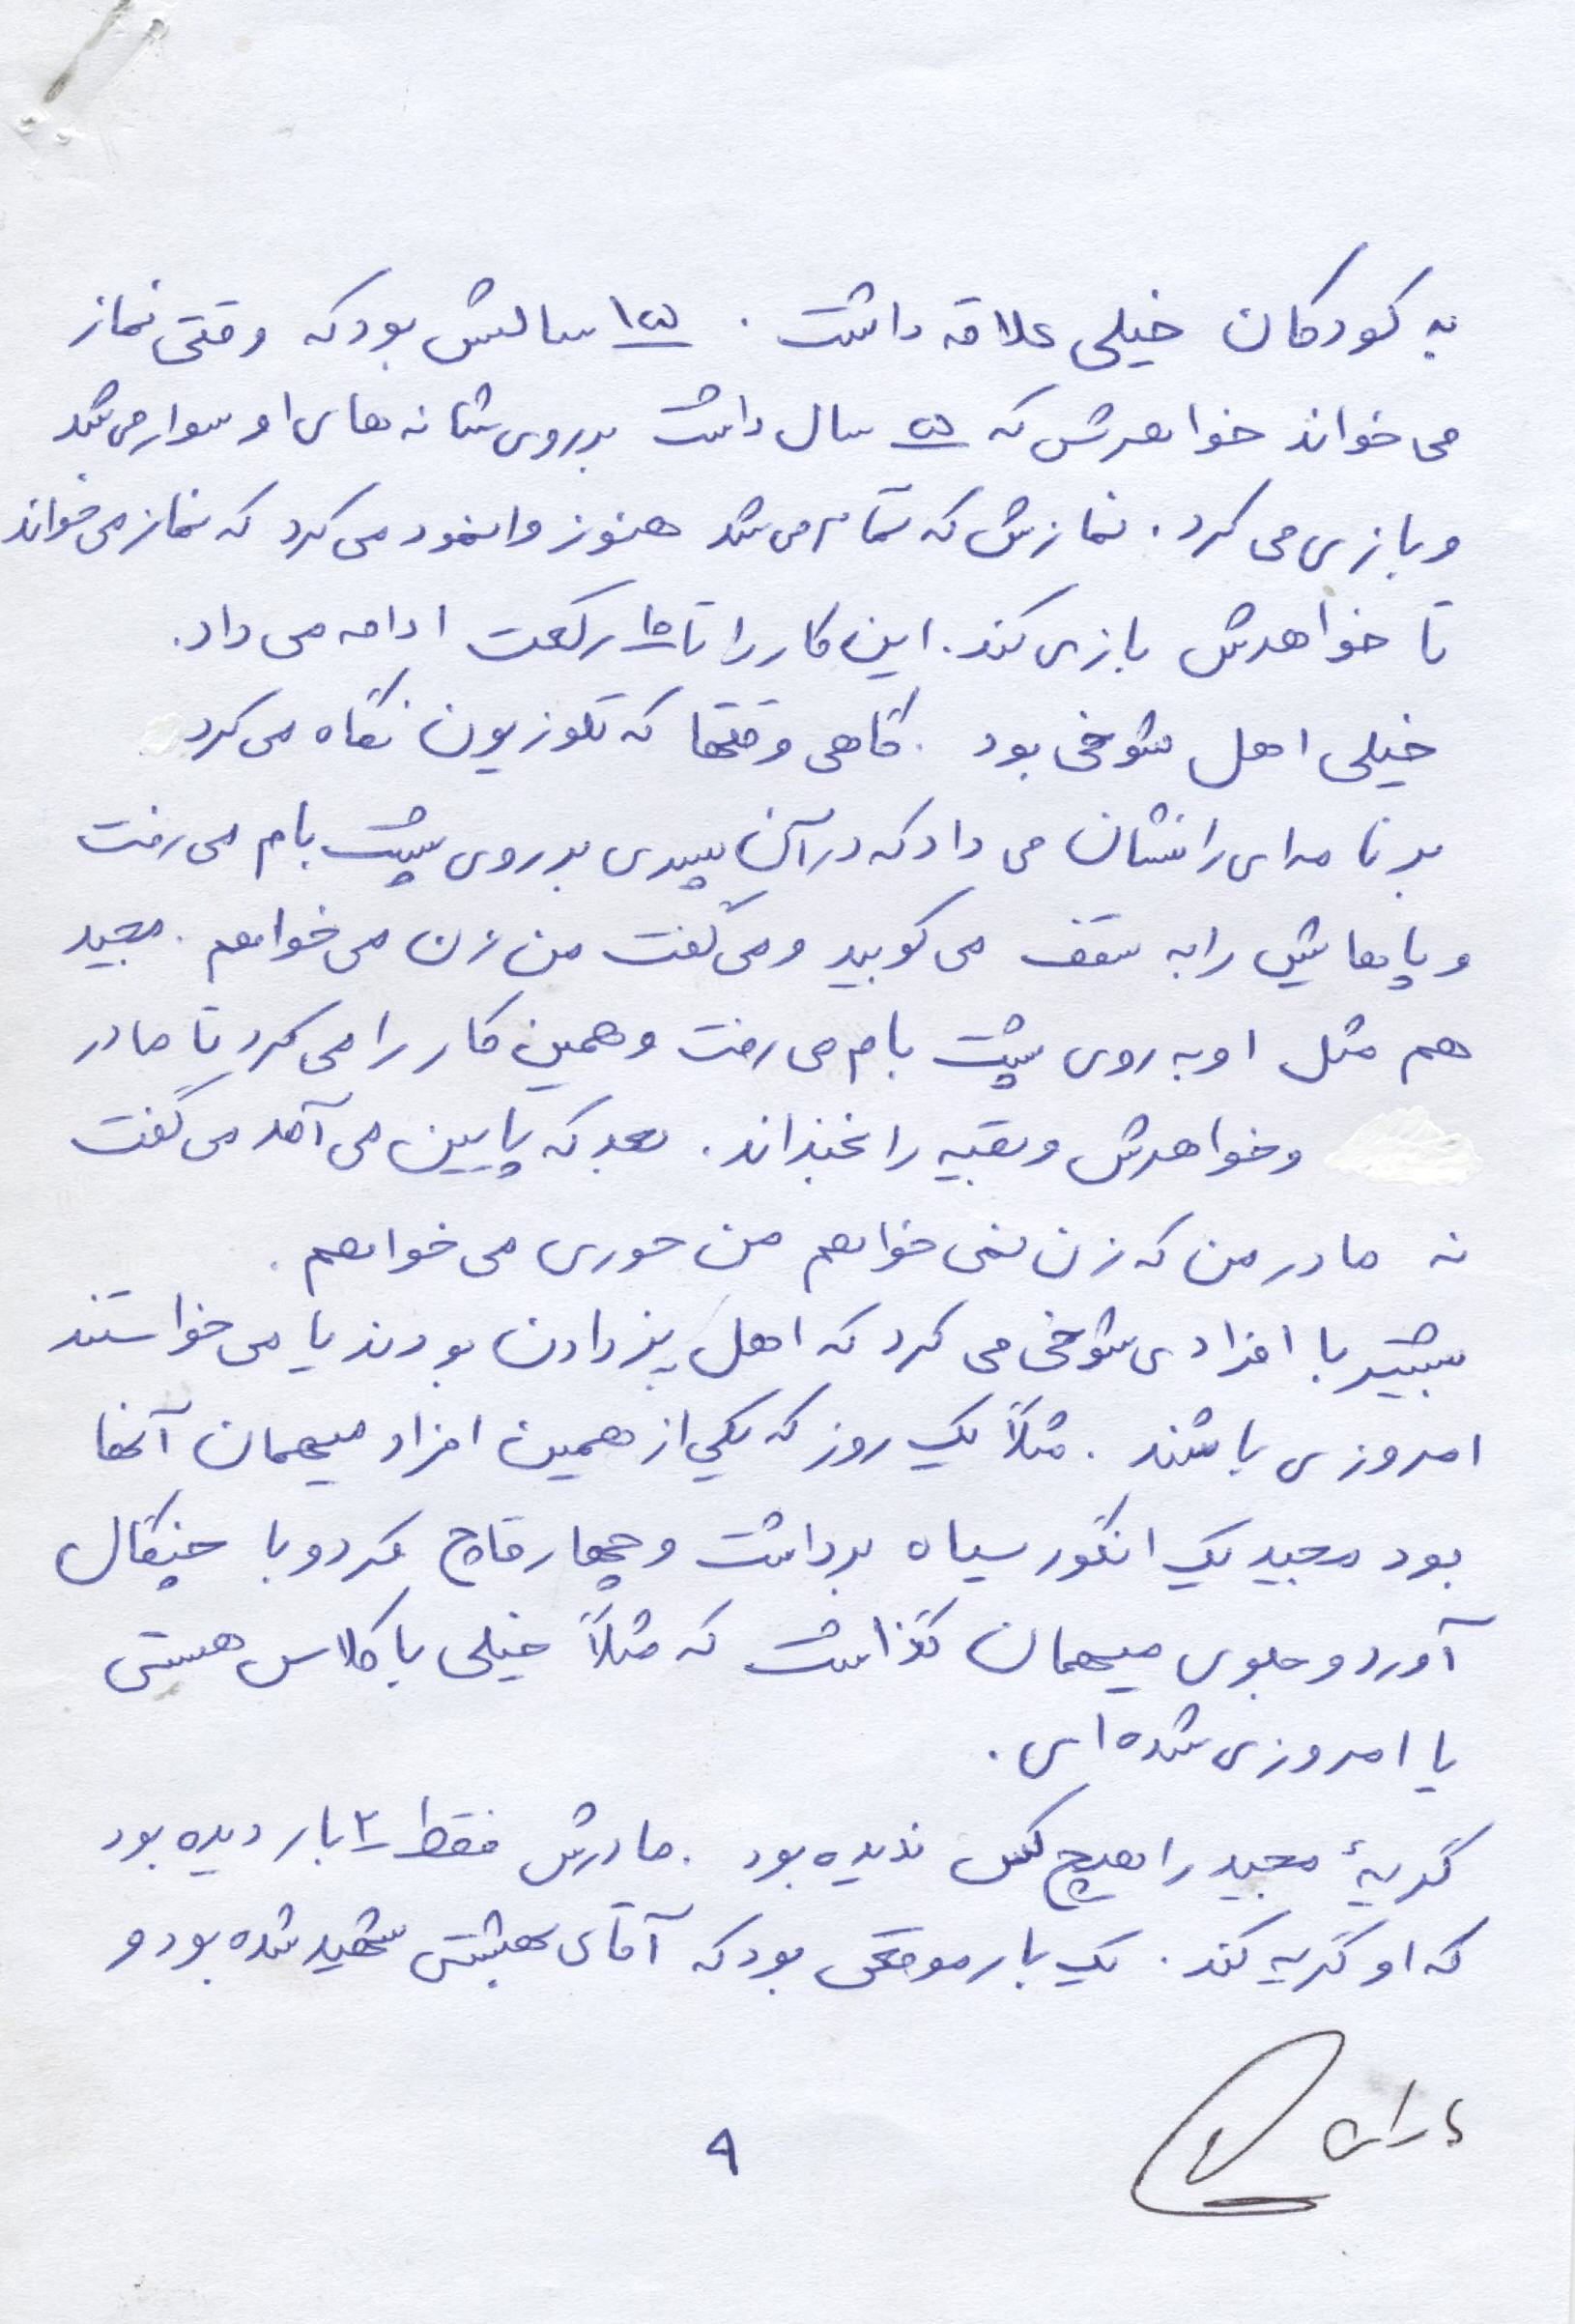 به کودکان خیلی علاقه داشت. ۱۵ سالش بود که وقتی نماز
می خواند خواهرش که ۵ سال داشت بر روی شانه های او سوار می شد
و بازی می کرد. نمازش که تمام می شد هنوز وانمود می کرد که نماز می خواند
تا خواهرش بازی کند. این کار را تا ۱۰ رکعت ادامه می داد.
خیلی اهل شوخی بود. گاهی وقتها که تلوزیون نگاه می کرد
برنامه ای را نشان می داد که در آن پسری بر روی پشت بام می رفت
و پاهایش را به سقف می کوبید و می گفت من زن می خواهم. مجید
هم مثل او به روی پشت بام می رفت و همین کار را می کرد تا مادر
و خواهرش و بقیه را بخنداند. بعد که پایین می آمد می گفت
نه مادر من که زن نمی خواهم من حوری می خواهم.
بیشتر با افرادی شوخی می کرد که اهل پز دادن بودند یا می خواستند
امروزی باشند. مثلاً یک روز که یکی از همین افراد میهمان آنها
بود مجید یک انگور سیاه برداشت و چهار قاچ کرد و با چنگال
آورد و جلوی میهمان گذاشت که مثلاً خیلی با کلاس هستی
یا امروزی شده ای.
گریهٔ مجید را هیچ کس ندیده بود. مادرش فقط ۲ بار دیده بود
که او گریه کند. یک بار موقعی بود که آقای بهشتی شهید شده بود و
۹